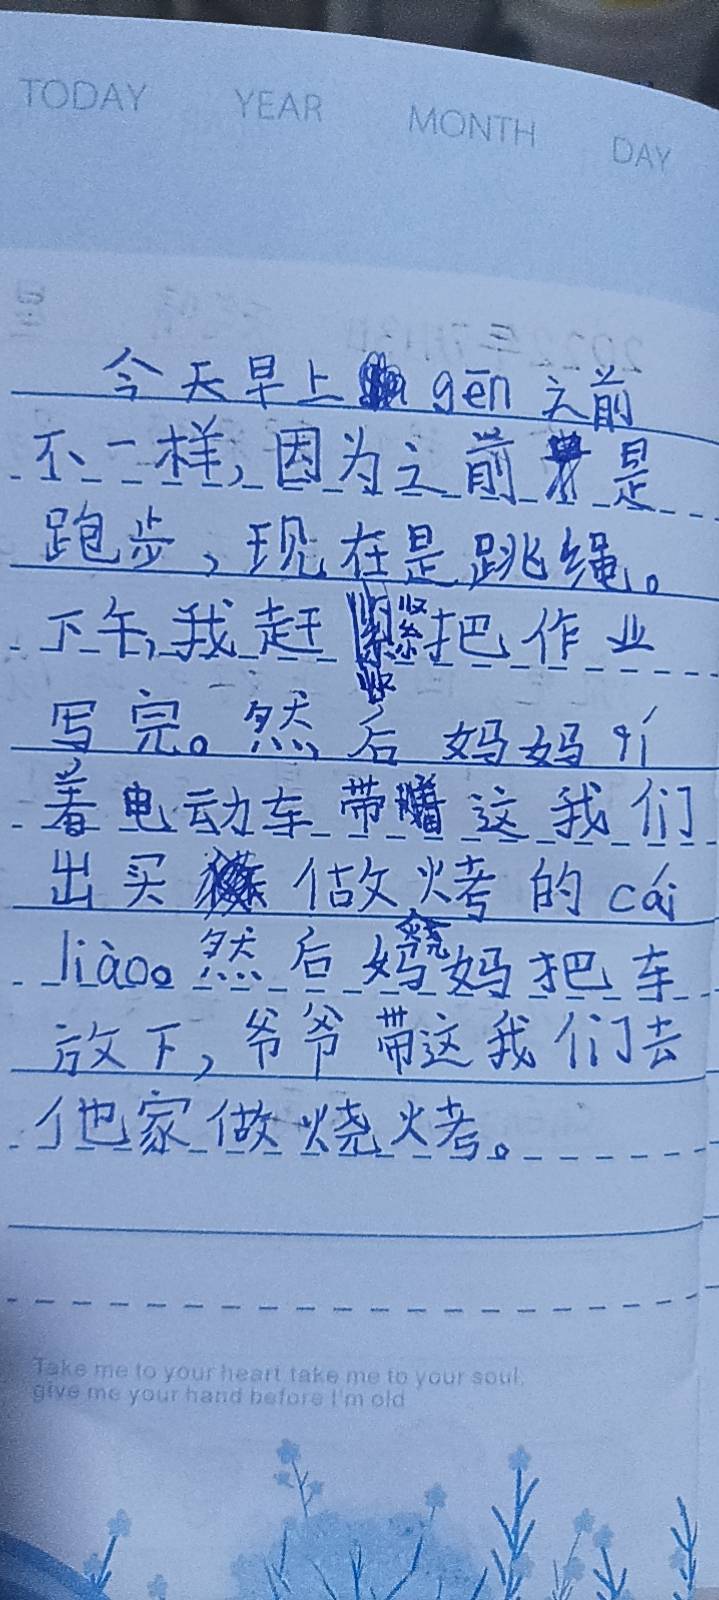 TODAY YEAR MONTH DAY
今天早上 gēn 之前
不一样,因为之前是
跑步,现在是跳绳。
下午,我赶紧把作业
写完。然后妈妈 qí
着电动车带这我们
出买做烧烤的 cái
liào。然后妈妈把车
放下,爷爷带这我们去
他家做烧烤。
Take me to your heart take me to your soul,
give me your hand before I'm old